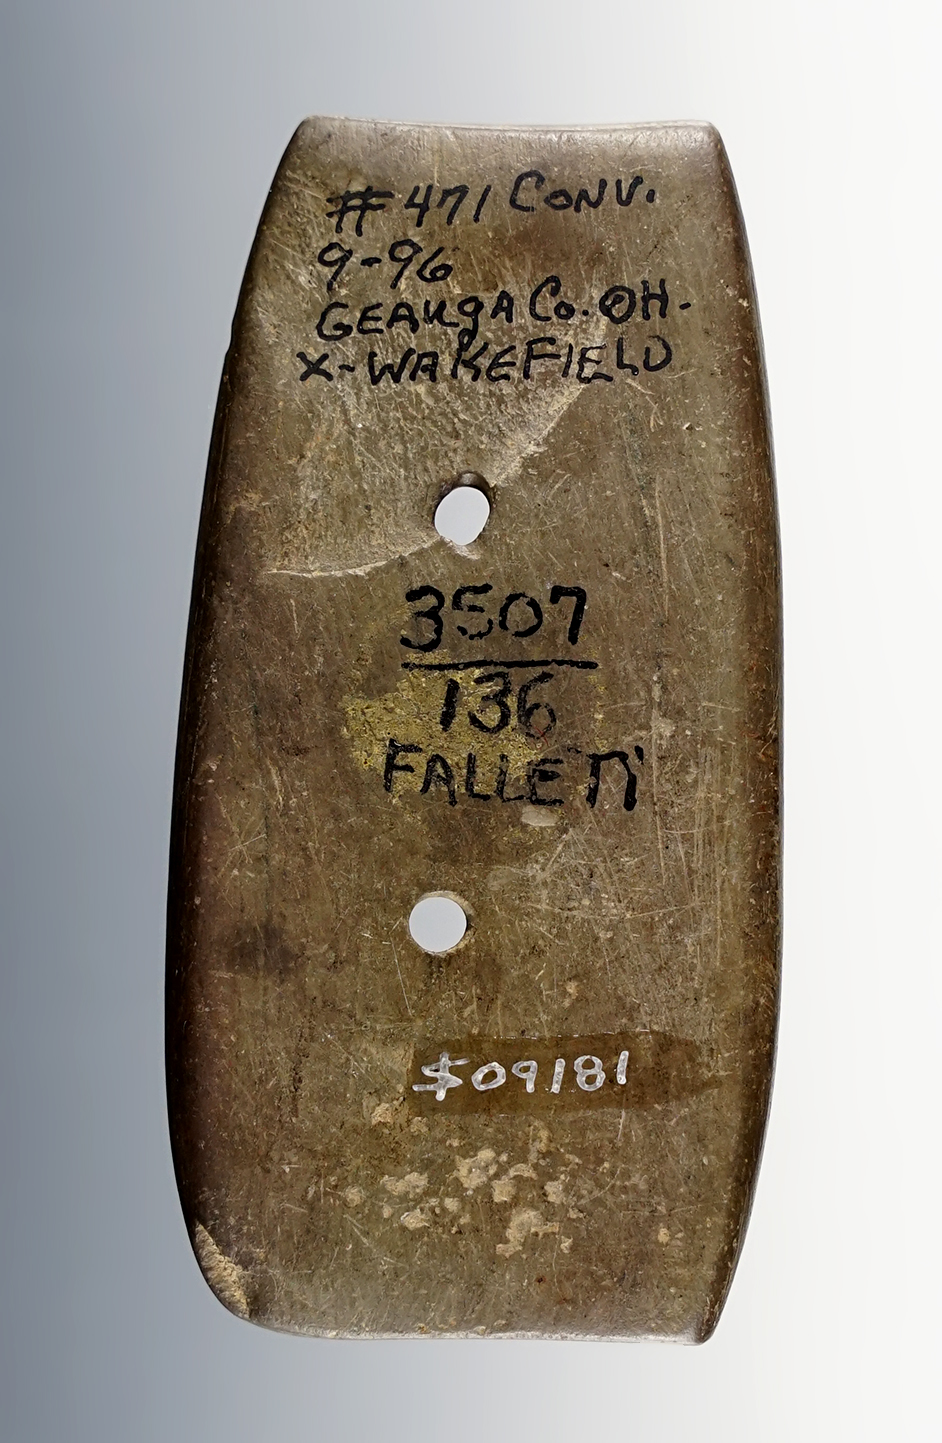 #471 CONV.
9-96
GEAUgA Co. OH.
X-WAKEFIELD
3507
136
FALLETTI
$09181